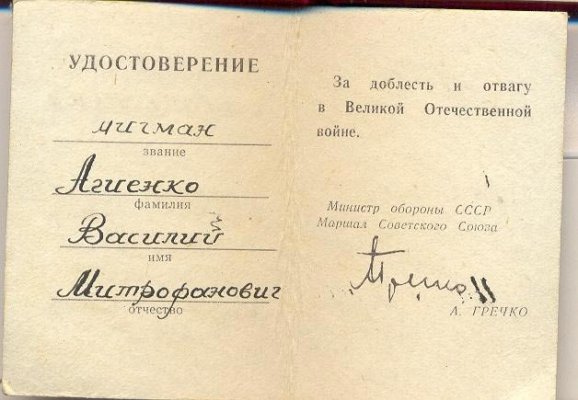 УДОСТОВЕРЕНИЕ
мичман
звание
Агиенко
фамилия
Василий
имя
Митрофанович
отчество
За доблесть и отвагу
в Великой Отечественной
войне.
Министр обороны СССР
Маршал Советского Союза
А. ГРЕЧКО